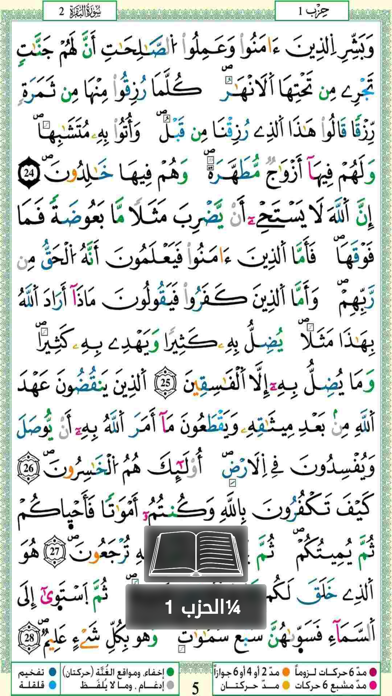 حِزْب 1
سُورَةُ البَقَرَة 2
وَبَشِّرِ اِ۬لذِينَ ءَامَنُواْ وَعَمِلُواْ اُ۬لصَّٰلِحَٰتِ أَنَّ لَهُمْ جَنَّٰتٖ
تَجْرِے مِن تَحْتِهَا اَ۬لَانْهَٰرُۖ كُلَّمَا رُزِقُواْ مِنْهَا مِن ثَمَرَةٖ
رِّزْقاٗ قَالُواْ هَٰذَا اَ۬لذِے رُزِقْنَا مِن قَبْلُۖ وَأُتُواْ بِهِۦ مُتَشَٰبِهاٗۖ
وَلَهُمْ فِيهَآ أَزْوَٰجٞ مُّطَهَّرَةٞۖ وَهُمْ فِيهَا خَٰلِدُونَۖ 24
إِنَّ اَ۬للَّهَ لَا يَسْتَحْيِۦٓ أَنْ يَّضْرِبَ مَثَلاٗ مَّا بَعُوضَةٗ فَمَا
فَوْقَهَاۖ فَأَمَّا اَ۬لذِينَ ءَامَنُواْ فَيَعْلَمُونَ أَنَّهُ اُ۬لْحَقُّ مِن
رَّبِّهِمْۖ وَأَمَّا اَ۬لذِينَ كَفَرُواْ فَيَقُولُونَ مَاذَآ أَرَادَ اَ۬للَّهُ
بِهَٰذَا مَثَلاٗۖ يُضِلُّ بِهِۦ كَثِيراٗ وَيَهْدِے بِهِۦ كَثِيراٗۖ
وَمَا يُضِلُّ بِهِۦٓ إِلَّا اَ۬لْفَٰسِقِينَ 25 اَ۬لذِينَ يَنقُضُونَ عَهْدَ
اَ۬للَّهِ مِنۢ بَعْدِ مِيثَٰقِهِۦ وَيَقْطَعُونَ مَآ أَمَرَ اَ۬للَّهُ بِهِۦٓ أَنْ يُّوصَلَ
وَيُفْسِدُونَ فِے اِ۬لَارْضِۖ أُوْلَٰٓئِكَ هُمُ اُ۬لْخَٰسِرُونَۖ 26
كَيْفَ تَكْفُرُونَ بِاللَّهِ وَكُنتُمُۥٓ أَمْوَٰتاٗ فَأَحْيَٰكُمْ
ثُمَّ يُمِيتُكُمْ ثُمَّ يُ هِ تُرْجَعُونَۖ 27 هُوَ
اَ۬لذِے خَلَقَ لَكُم ثُمَّ اَ۪سْتَوَىٰٓ إِلَى
اَ۬لسَّمَآءِ فَسَوَّىٰهُنَّ سَبْعَ سَمَٰوَٰتٖۖ وَهُوَ بِكُلِّ شَےْءٍ عَلِيمٞۖ 28
¼الحزب 1
مدّ 6 حركات لزوماً مدّ 2 أو 4 أو 6 جوازاً إخفاء، ومواقع الغُنَّة (حركتان) تفخيم
مدّ مشبع 6 حركات مدّ حركتان إدغام، وما لا يُلفَظ قلقلة
5